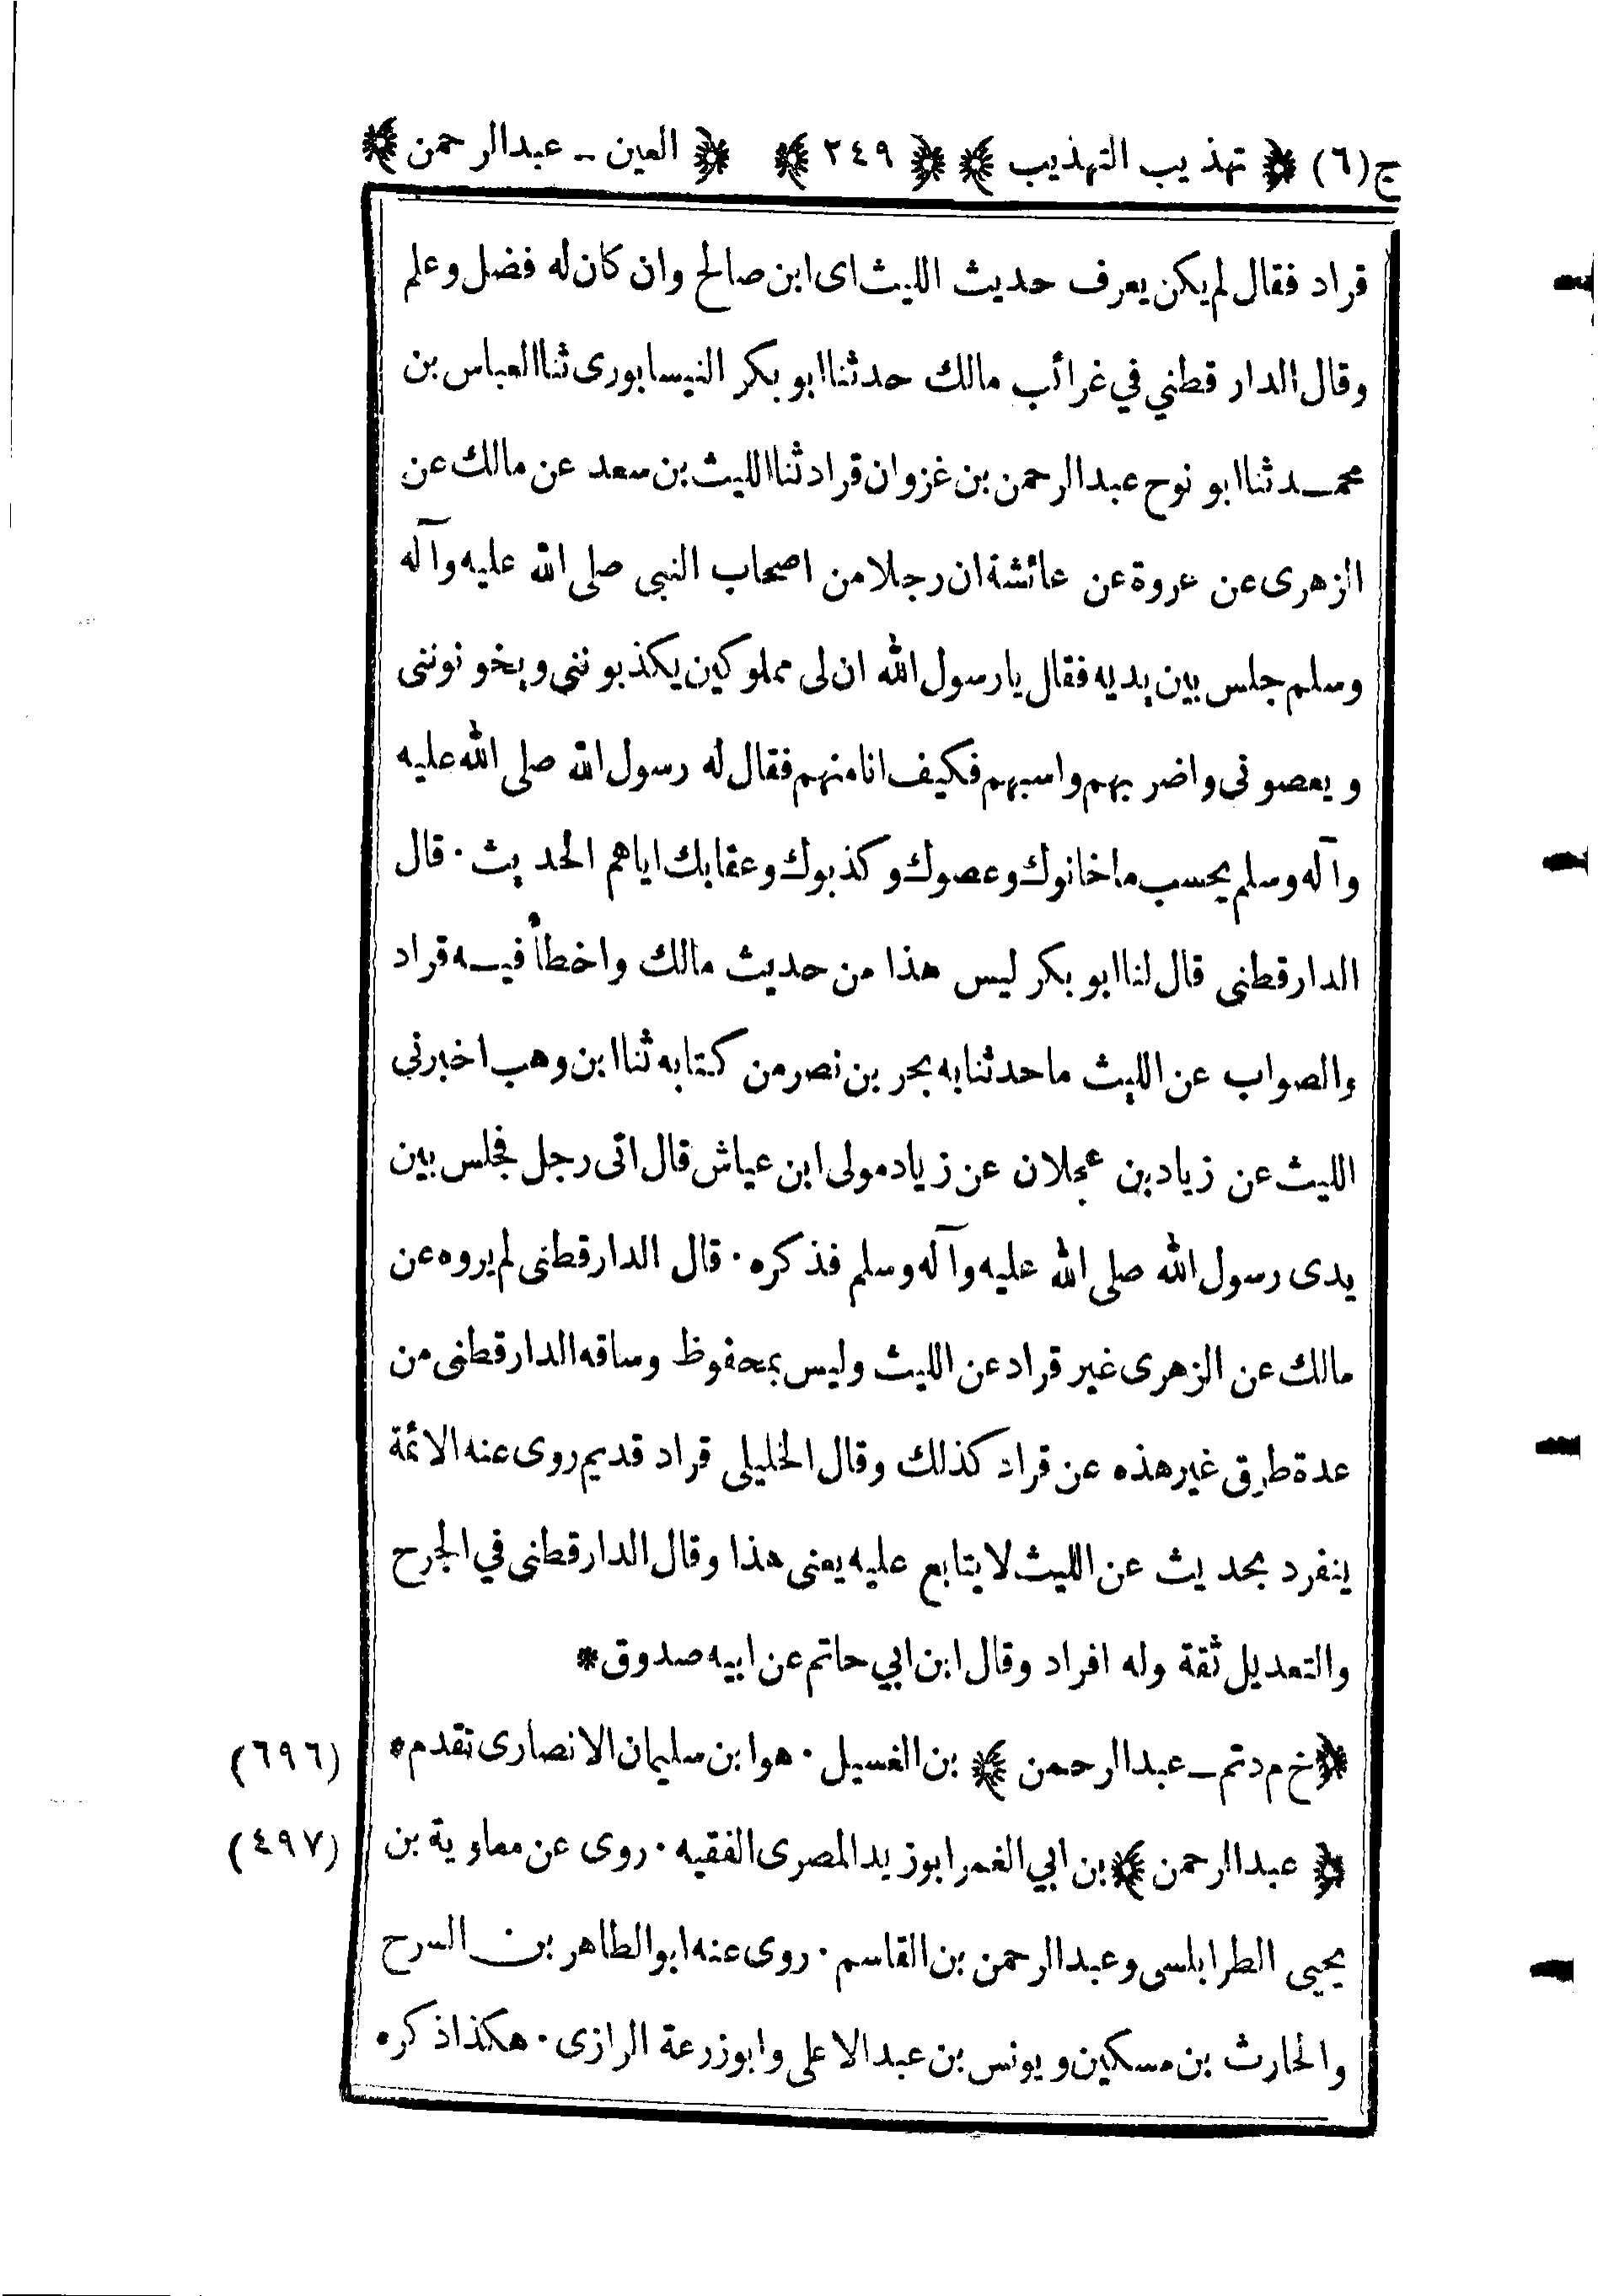 ج (٦) ﴿ تهذيب التهذيب ﴾ ﴿ ٢٤٩ ﴾ ﴿ العين - عبدالرحمن ﴾
قراد فقال لم يكن يعرف حديث الليث اى ابن صالح وان كان له فضل وعلم
وقال الدارقطني في غرائب مالك حدثنا ابو بكر النيسابورى ثنا العباس بن
محمد ثنا ابو نوح عبدالرحمن بن غزوان قراد ثنا الليث بن سعد عن مالك عن
الزهرى عن عروة عن عائشة ان رجلا من اصحاب النبى صلى الله عليه وآله
وسلم جلس بين يديه فقال يارسول الله ان لى مملوكين يكذبوننى ويخونوننى
ويعصونى واضربهم واسبهم فكيف انا منهم فقال له رسول الله صلى الله عليه
وآله وسلم يحسب ما خانوك وعصوك وكذبوك وعقابك اياهم الحديث · قال
الدارقطنى قال لنا ابو بكر ليس هذا من حديث مالك واخطأ فيه قراد
والصواب عن الليث ما حدثنا به بحر بن نصر من كتابه ثنا ابن وهب اخبرني
الليث عن زياد بن عجلان عن زياد مولى ابن عياش قال اتى رجل فجلس بين
يدى رسول الله صلى الله عليه وآله وسلم فذكره · قال الدارقطنى لم يروه عن
مالك عن الزهرى غير قراد عن الليث وليس بمحفوظ وساقه الدارقطنى من
عدة طرق غير هذه عن قراد كذلك وقال الخليلى قراد قديم روى عنه الائمة
ينفرد بحديث عن الليث لا يتابع عليه يعنى هذا وقال الدارقطنى في الجرح
والتعديل ثقة وله افراد وقال ابن ابي حاتم عن ابيه صدوق *
﴿ خ م د تم - عبدالرحمن ﴾ بن الغسيل · هو ابن سليمان الانصارى تقدم * (٦٩٦)
﴿ عبدالرحمن ﴾ بن ابي الغمر ابو زيد المصرى الفقيه · روى عن معاوية بن (٤٩٧)
يحيى الطرابلسى وعبدالرحمن بن القاسم · روى عنه ابو الطاهر بن السرح
والحارث بن مسكين ويونس بن عبد الاعلى وابوزرعة الرازى · هكذا ذكره